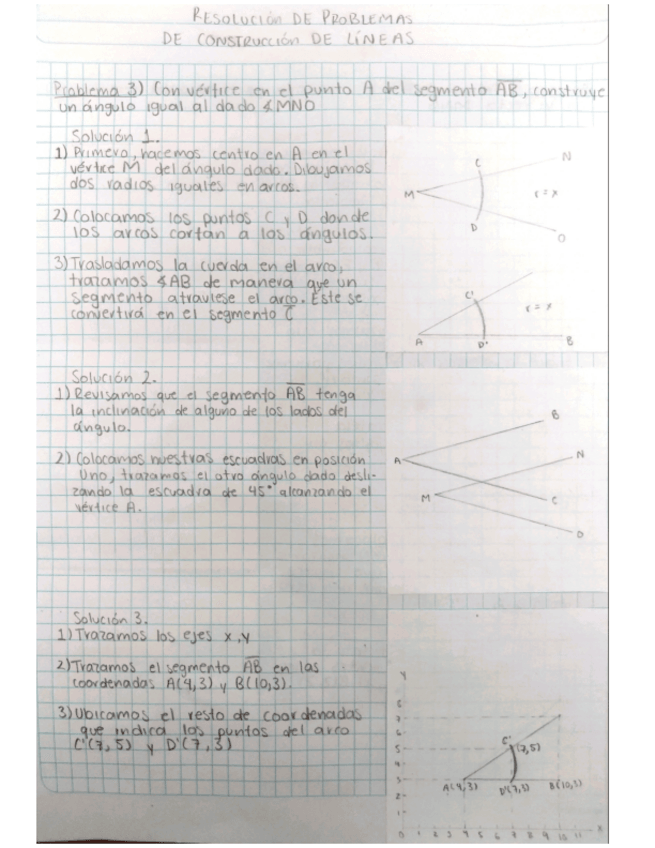 RESOLUCIÓN DE PROBLEMAS
DE CONSTRUCCIÓN DE LÍNEAS
Problema 3) Con vértice en el punto A del segmento AB, construye
un ángulo igual al dado ∡MNO
Solución 1.
1) Primero, hacemos centro en A en el
vértice M del ángulo dado. Dibujamos
dos radios iguales en arcos.
2) Colocamos los puntos C y D donde
los arcos cortan a los ángulos.
3) Trasladamos la cuerda en el arco,
trazamos ∡AB de manera que un
segmento atraviese el arco. Éste se
convertirá en el segmento C
M
C
D
N
O
r = x
A
C'
D'
B
r = x
Solución 2.
1) Revisamos que el segmento AB tenga
la inclinación de alguno de los lados del
ángulo.
2) Colocamos nuestras escuadras en posición
uno, trazamos el otro ángulo dado desli-
zando la escuadra de 45° alcanzando el
vértice A.
B
A
N
M
C
O
Solución 3.
1) Trazamos los ejes x, y
2) Trazamos el segmento AB en las
coordenadas A(4,3) y B(10,3).
3) Ubicamos el resto de coordenadas
que indica los puntos del arco
C'(7,5) y D'(7,3)
Y
8
7
6
5
4
3
2
1
C'
(7,5)
A(4,3)
D'(7,3)
B(10,3)
0 1 2 3 4 5 6 7 8 9 10 11 X